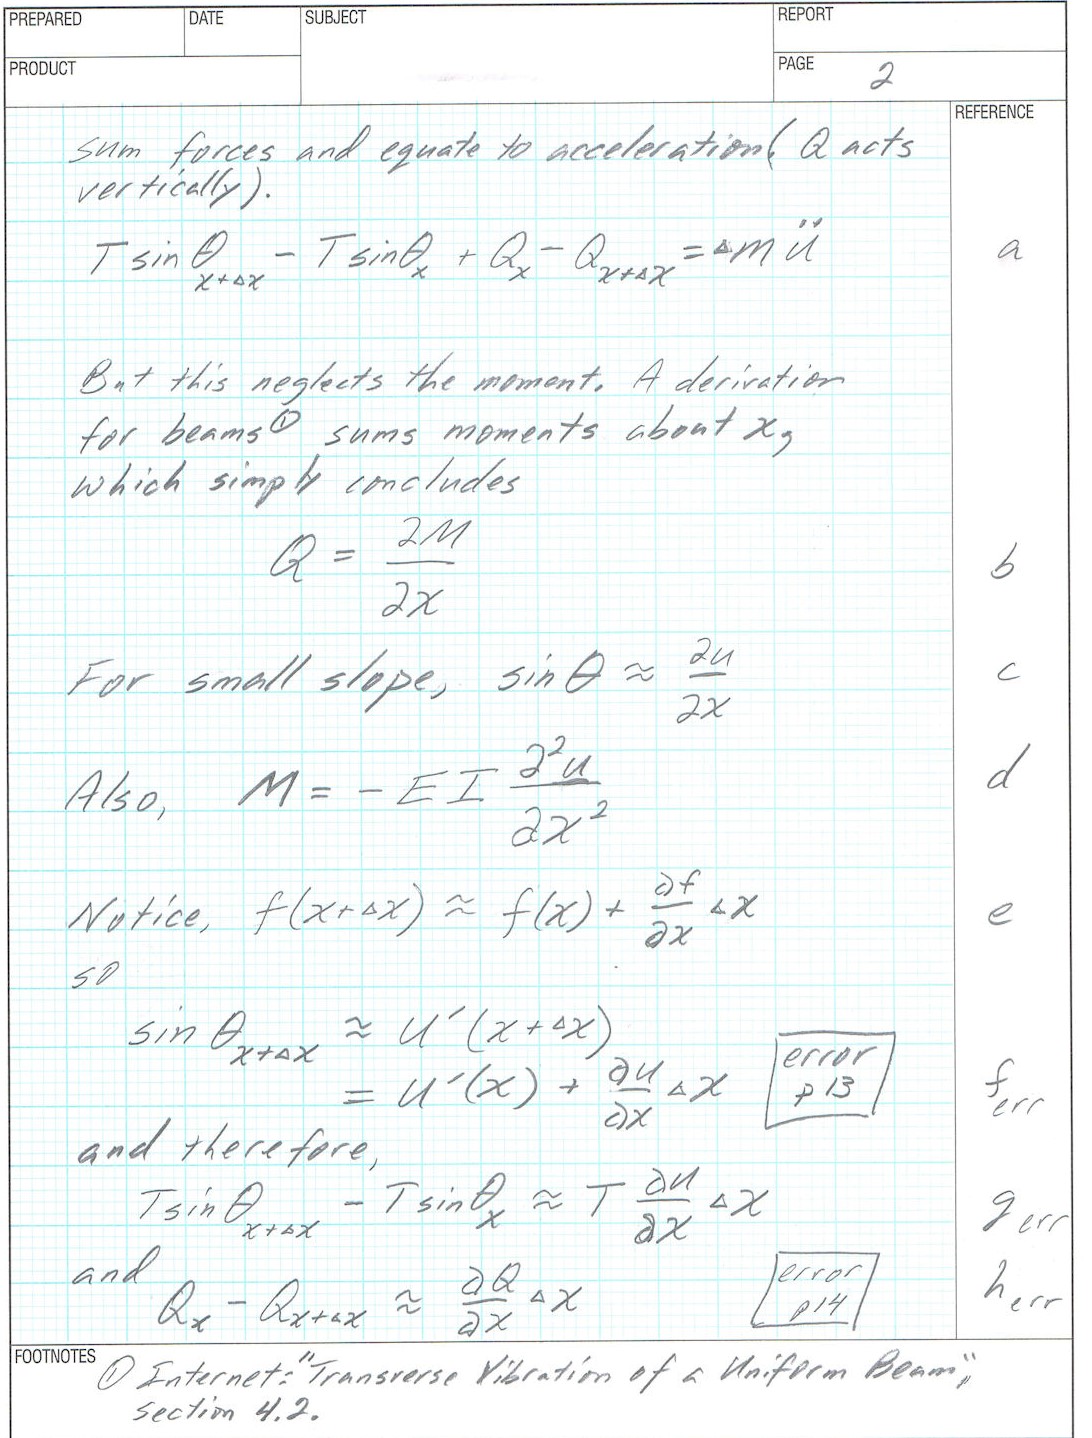 PREPARED
DATE
SUBJECT
REPORT
PRODUCT
PAGE 2
REFERENCE
sum forces and equate to acceleration (Q acts
vertically).
T sin θ_{x+Δx} - T sin θ_x + Q_x - Q_{x+Δx} = Δm ü a
But this neglects the moment. A derivation
for beams① sums moments about x,
which simply concludes
Q = ∂M/∂x b
For small slope, sin θ ≈ ∂u/∂x c
Also, M = - E I ∂²u/∂x² d
Notice, f(x+Δx) ≈ f(x) + ∂f/∂x Δx e
so
sin θ_{x+Δx} ≈ u'(x+Δx)
= u'(x) + ∂u/∂x Δx error p 13 f_err
and therefore,
T sin θ_{x+Δx} - T sin θ_x ≈ T ∂u/∂x Δx g_err
and
Q_x - Q_{x+Δx} ≈ ∂Q/∂x Δx error p14 h_err
FOOTNOTES
① Internet: "Transverse Vibration of a Uniform Beam",
section 4.2.